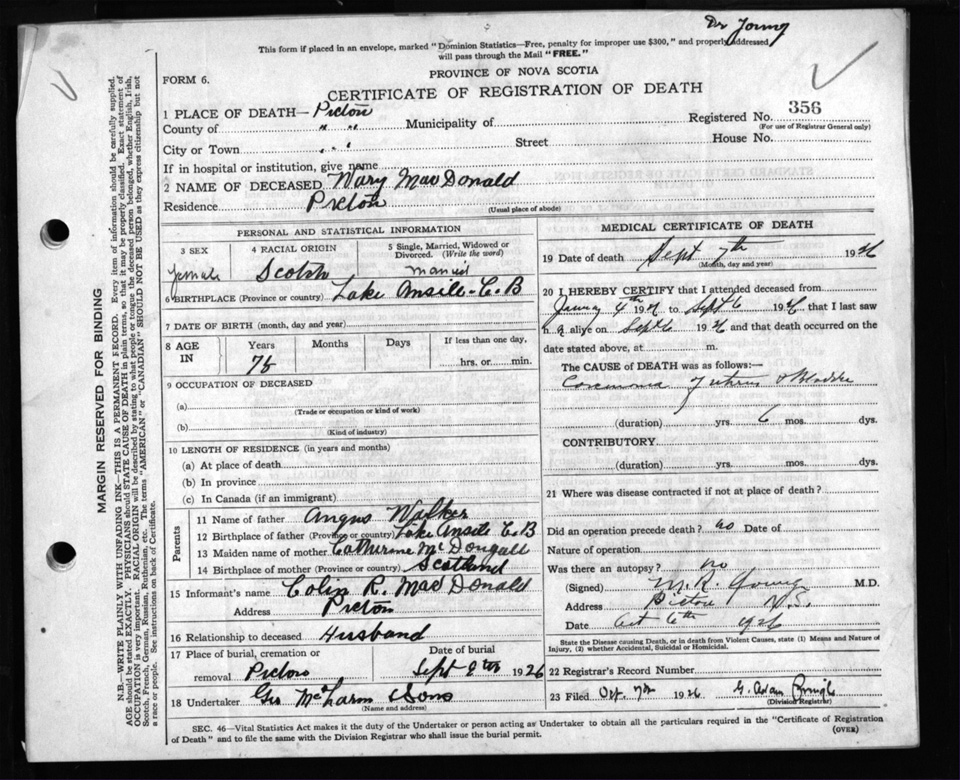 Dr Young
This form if placed in an envelope, marked "Dominion Statistics—Free, penalty for improper use $300," and properly addressed
will pass through the Mail "FREE."
PROVINCE OF NOVA SCOTIA
FORM 6.
CERTIFICATE OF REGISTRATION OF DEATH
1 PLACE OF DEATH— Pictou
Registered No. 356
County of " " Municipality of
(For use of Registrar General only)
City or Town " " Street House No.
If in hospital or institution, give name
2 NAME OF DECEASED Mary MacDonald
Residence Pictou
(Usual place of abode)
PERSONAL AND STATISTICAL INFORMATION
3 SEX 4 RACIAL ORIGIN 5 Single, Married, Widowed or Divorced. (Write the word)
Female Scotch Married
6 BIRTHPLACE (Province or country) Lake Ansile - C.B
7 DATE OF BIRTH (month, day and year)
8 AGE IN Years Months Days If less than one day,
75 hrs. or min.
9 OCCUPATION OF DECEASED
(a)
(Trade or occupation or kind of work)
(b)
(Kind of industry)
10 LENGTH OF RESIDENCE (in years and months)
(a) At place of death
(b) In province
(c) In Canada (if an immigrant)
Parents
11 Name of father Angus Walker
12 Birthplace of father (Province or country) Lake Ansile C.B
13 Maiden name of mother Catherine McDougall
14 Birthplace of mother (Province or country) Scotland
15 Informant's name Colin R. MacDonald
Address Pictou
16 Relationship to deceased Husband
17 Place of burial, cremation or removal Pictou
Date of burial Sept 9th 1926
18 Undertaker Geo McLaren & Sons
(Name and address)
MEDICAL CERTIFICATE OF DEATH
19 Date of death Sept 7th 1926
(Month, day and year)
20 I HEREBY CERTIFY that I attended deceased from
4th 192 to Sept 6 1926 that I last saw
h alive on Sept 6 1926 and that death occurred on the
date stated above, at m.
The CAUSE OF DEATH was as follows:—
Carcinoma Uterus & Bladder
(duration) yrs. 6 mos. dys.
CONTRIBUTORY
(duration) yrs. mos. dys.
21 Where was disease contracted if not at place of death?
Did an operation precede death? no Date of
Nature of operation
Was there an autopsy? no
(Signed) M.R. Young M.D.
Address Pictou N.S.
Date Oct 6th 1926
State the Disease causing Death, or in death from Violent Causes, state (1) Means and Nature of
Injury, (2) whether Accidental, Suicidal or Homicidal.
22 Registrar's Record Number
23 Filed Oct. 7th 1926 G. Adam
(Division Registrar)
SEC. 46—Vital Statistics Act makes it the duty of the Undertaker or person acting as Undertaker to obtain all the particulars required in the "Certificate of Registration
of Death" and to file the same with the Division Registrar who shall issue the burial permit.
(OVER)
MARGIN RESERVED FOR BINDING
N.B.—WRITE PLAINLY WITH UNFADING INK—THIS IS A PERMANENT RECORD. Every item of information should be carefully supplied.
AGE should be stated EXACTLY. PHYSICIANS should STATE CAUSE OF DEATH in plain terms, so that it may be properly classified. Exact statement of
OCCUPATION is very important. RACIAL ORIGIN will be described by stating to what people or tongue the deceased person belonged, whether English, Irish,
Scotch, French, German, Russian, Ruthenian, etc. The terms "AMERICAN" or "CANADIAN" SHOULD NOT BE USED as they express citizenship but not
a race or people. See instructions on back of Certificate.